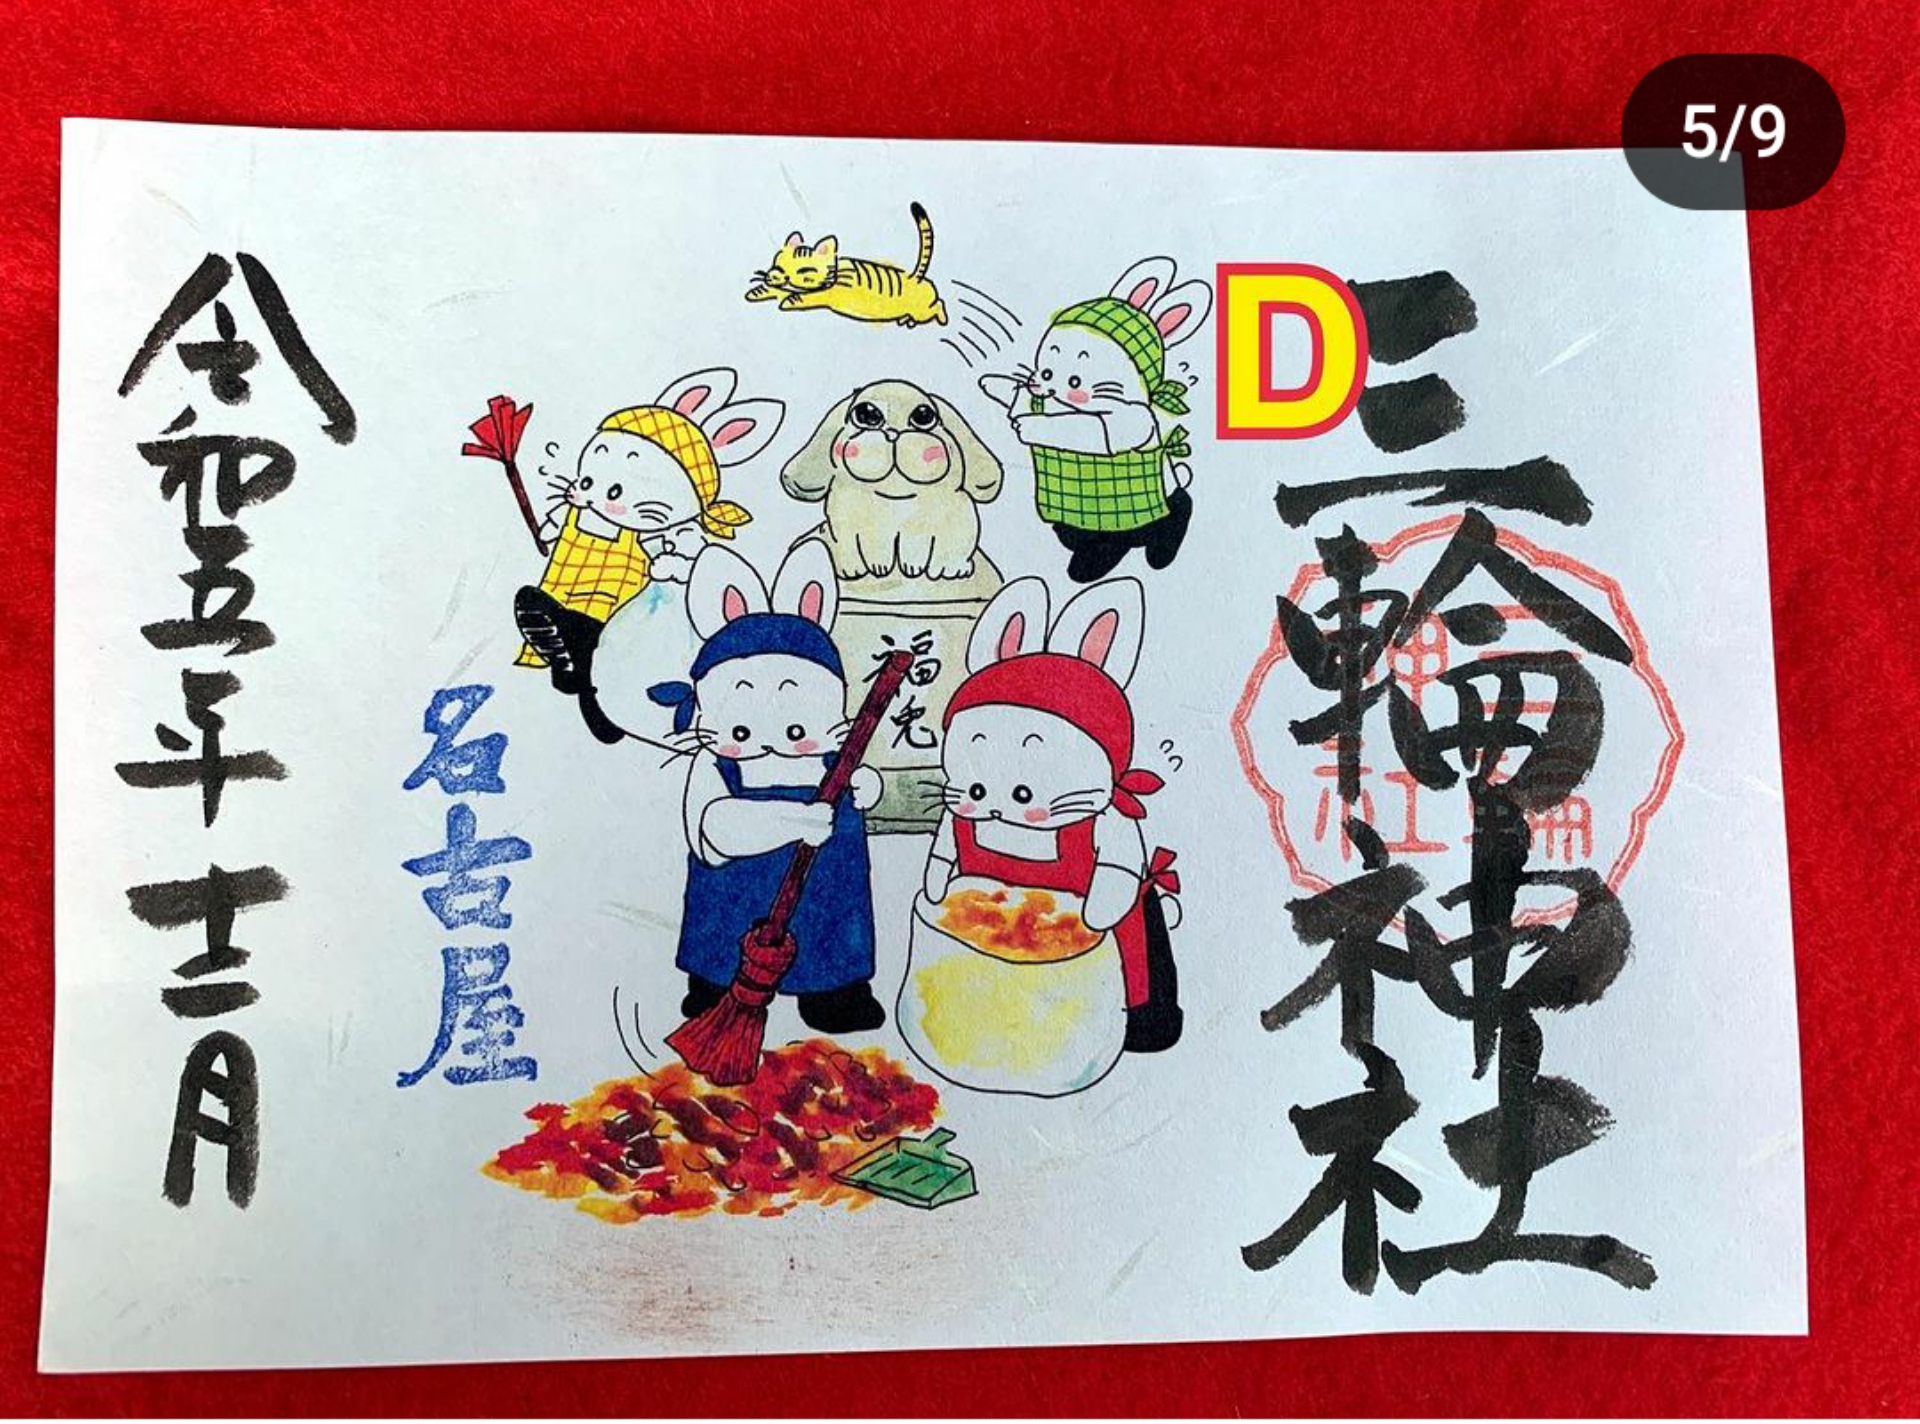 5/9
D
三輪神社
三輪神社
福兎
名古屋
令和五年十二月